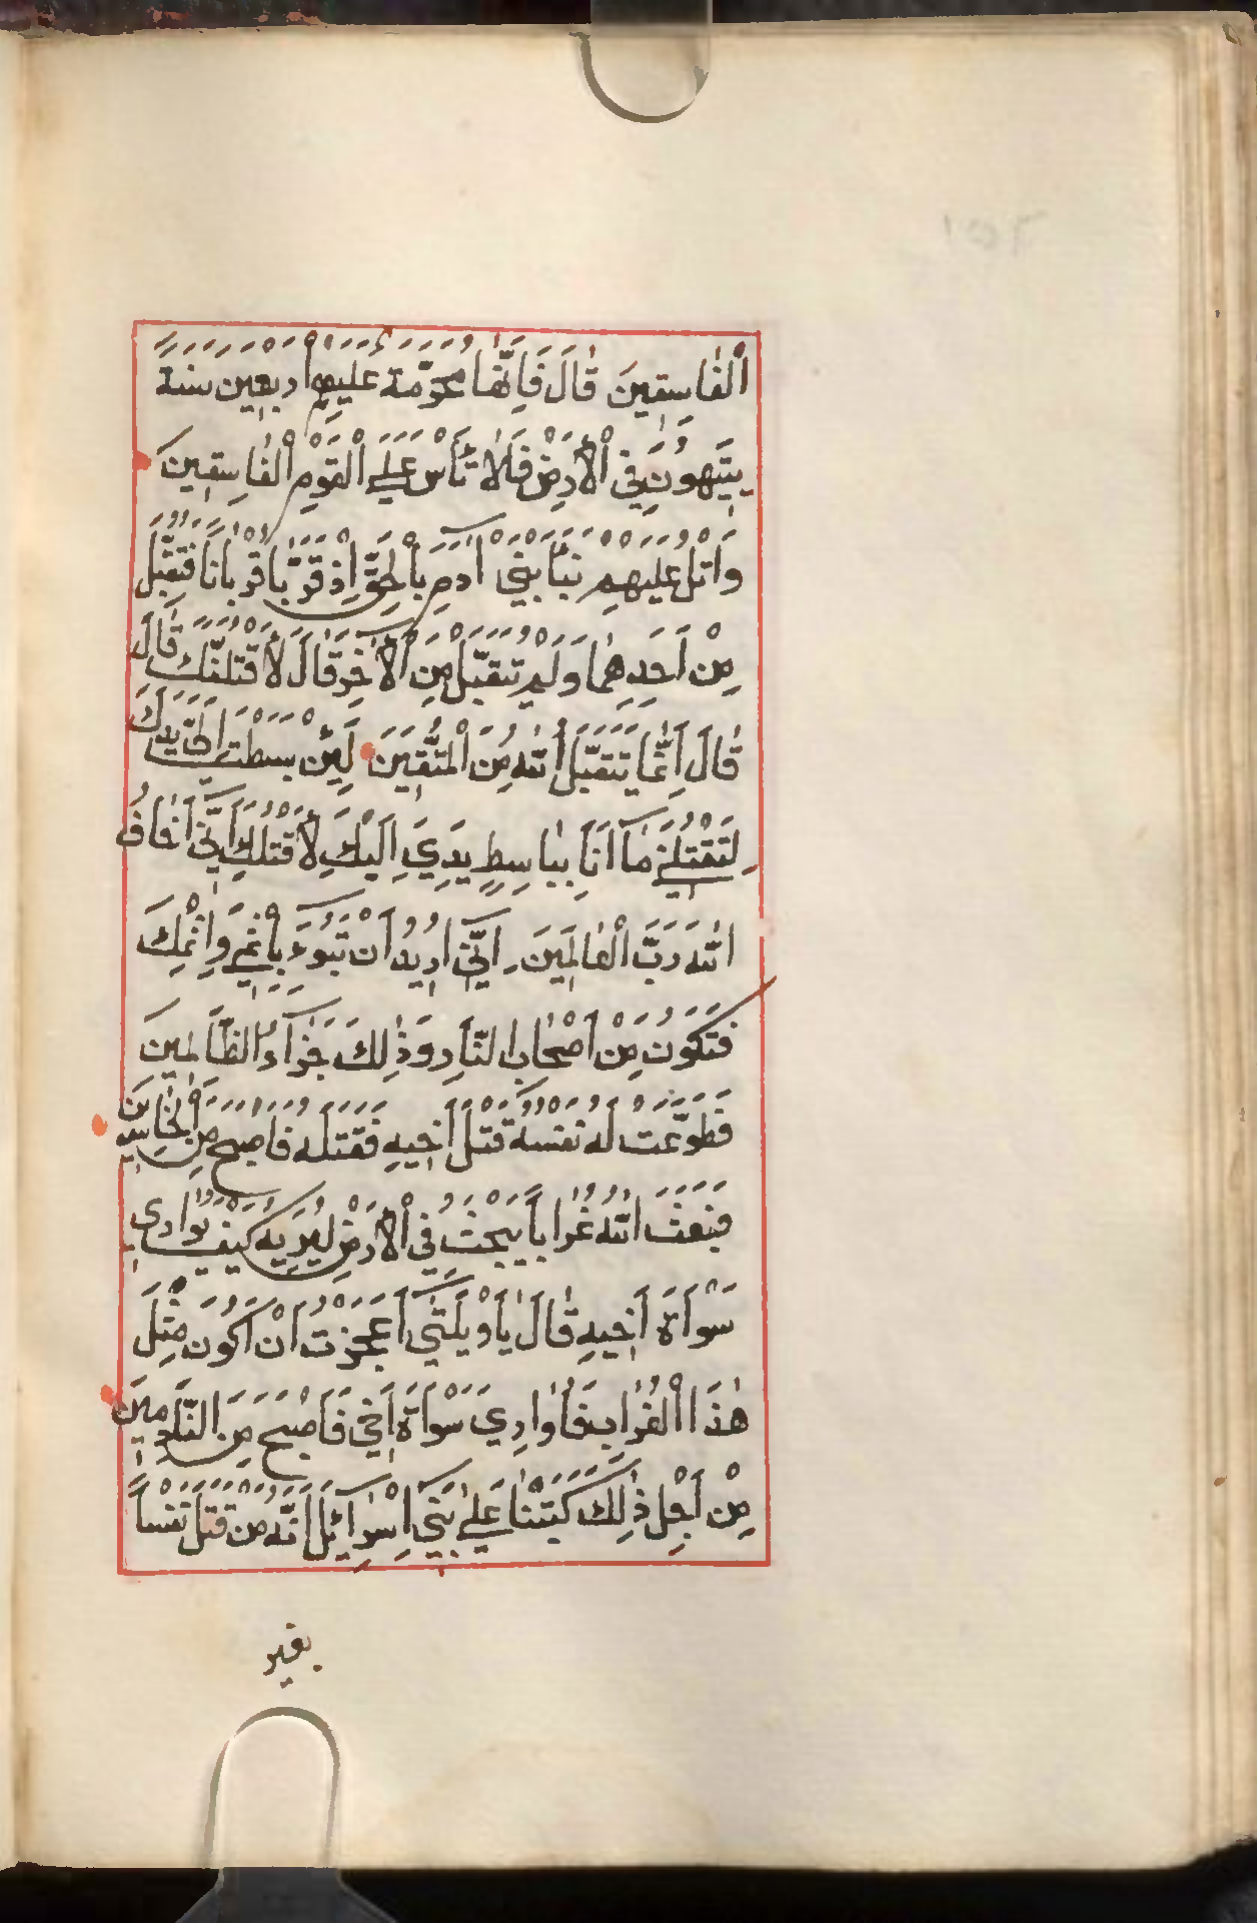 اَلْفٰاسِقينَ قٰالَ فَاِنَّهٰا مُحَرَّمَةٌ عَلَيْهِمْ اَرْبَعينَ سَنَةً
يَتيهُونَ فِي الْاَرْضِ فَلاٰ تَأْسَ عَلَى الْقَوْمِ الْفٰاسِقينَ
وَاتْلُ عَلَيْهِمْ نَبَأَ ابْنَيْ اٰدَمَ بِالْحَقِّ اِذْ قَرَّبٰا قُرْبٰاناً فَتُقُبِّلَ
مِنْ اَحَدِهِمٰا وَلَمْ يُتَقَبَّلْ مِنَ الْاٰخَرِ قٰالَ لَأَقْتُلَنَّكَ قٰالَ
قٰالَ اِنَّمٰا يَتَقَبَّلُ اللّٰهُ مِنَ الْمُتَّقينَ لَئِنْ بَسَطْتَ اِلَيَّ يَدَكَ
لِتَقْتُلَني مٰا اَنَا بِبٰاسِطٍ يَدِيَ اِلَيْكَ لِأَقْتُلَكَ اِنّي اَخٰافُ
اللّٰهَ رَبَّ الْعٰالَمينَ اِنّي اُريدُ اَنْ تَبُوءَ بِاِثْمي وَاِثْمِكَ
فَتَكُونَ مِنْ اَصْحٰابِ النّٰارِ وَذٰلِكَ جَزٰاءُ الظّٰالِمينَ
فَطَوَّعَتْ لَهُ نَفْسُهُ قَتْلَ اَخيهِ فَقَتَلَهُ فَاَصْبَحَ مِنَ الْخٰاسِرينَ
فَبَعَثَ اللّٰهُ غُرٰاباً يَبْحَثُ فِي الْاَرْضِ لِيُرِيَهُ كَيْفَ يُوٰاري
سَوْاَةَ اَخيهِ قٰالَ يٰا وَيْلَتٰى اَعَجَزْتُ اَنْ اَكُونَ مِثْلَ
هٰذَا الْغُرٰابِ فَاُوٰارِيَ سَوْاَةَ اَخي فَاَصْبَحَ مِنَ النّٰادِمينَ
مِنْ اَجْلِ ذٰلِكَ كَتَبْنٰا عَلٰى بَني اِسْرٰائيلَ اَنَّهُ مَنْ قَتَلَ نَفْساً
بغير